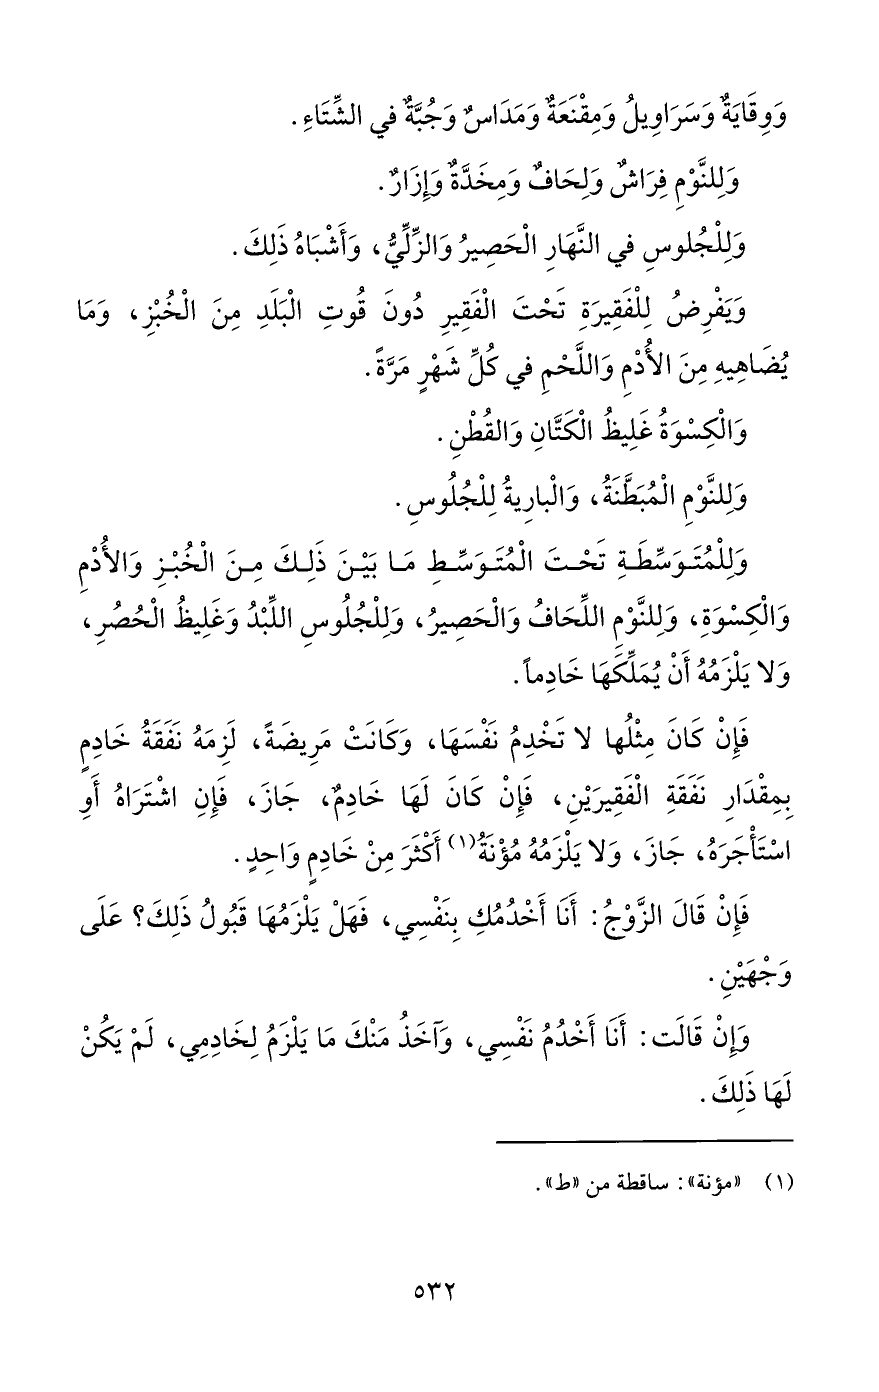 وَوِقَايَةٌ وَسَرَاوِيلُ وَمِقْنَعَةٌ وَمَدَاسٌ وَجُبَّةٌ في الشِّتَاءِ.
وَلِلنَّوْمِ فِرَاشٌ وَلِحَافٌ وَمِخَدَّةٌ وَإِزَارٌ.
وَلِلْجُلوسِ في النَّهَارِ الْحَصِيرُ وَالزِّلِّيُّ، وَأَشْبَاهُ ذَلِكَ.
وَيَفْرِضُ لِلْفَقِيرَةِ تَحْتَ الْفَقِيرِ دُونَ قُوتِ الْبَلَدِ مِنَ الْخُبْزِ، وَمَا
يُضَاهِيهِ مِنَ الأُدْمِ وَاللَّحْمِ في كُلِّ شَهْرٍ مَرَّةً.
وَالْكِسْوَةُ غَلِيظُ الْكَتَّانِ وَالقُطْنِ.
وَلِلنَّوْمِ الْمُبَطَّنَةُ، وَالْبارِيةُ لِلْجُلُوسِ.
وَلِلْمُتَوَسِّطَةِ تَحْتَ الْمُتَوَسِّطِ مَا بَيْنَ ذَلِكَ مِنَ الْخُبْزِ وَالأُدْمِ
وَالْكِسْوَةِ، وَلِلنَّوْمِ اللِّحَافُ وَالْحَصِيرُ، وَلِلْجُلُوسِ اللِّبْدُ وَغَلِيظُ الْحُصُرِ،
وَلا يَلْزَمُهُ أَنْ يُمَلِّكَهَا خَادِماً.
فَإِنْ كَانَ مِثْلُها لا تَخْدِمُ نَفْسَهَا، وَكَانَتْ مَرِيضَةً، لَزِمَهُ نَفَقَةُ خَادِمٍ
بِمِقْدَارِ نَفَقَةِ الْفَقِيرَيْنِ، فَإِنْ كَانَ لَهَا خَادِمٌ، جَازَ، فَإِنِ اشْتَرَاهُ أَوِ
اسْتَأْجَرَهُ، جَازَ، وَلا يَلْزَمُهُ مُؤْنَةُ(١) أَكْثَرَ مِنْ خَادِمٍ وَاحِدٍ.
فَإِنْ قَالَ الزَّوْجُ: أَنَا أَخْدُمُكِ بِنَفْسِي، فَهَلْ يَلْزَمُهَا قَبُولُ ذَلِكَ؟ عَلَى
وَجْهَيْنِ.
وَإِنْ قَالَت: أَنَا أَخْدُمُ نَفْسِي، وَآخَذُ مَنْكَ مَا يَلْزَمُ لِخَادِمِي، لَمْ يَكُنْ
لَهَا ذَلِكَ.
(١) «مؤنة»: ساقطة من «ط».
٥٣٢